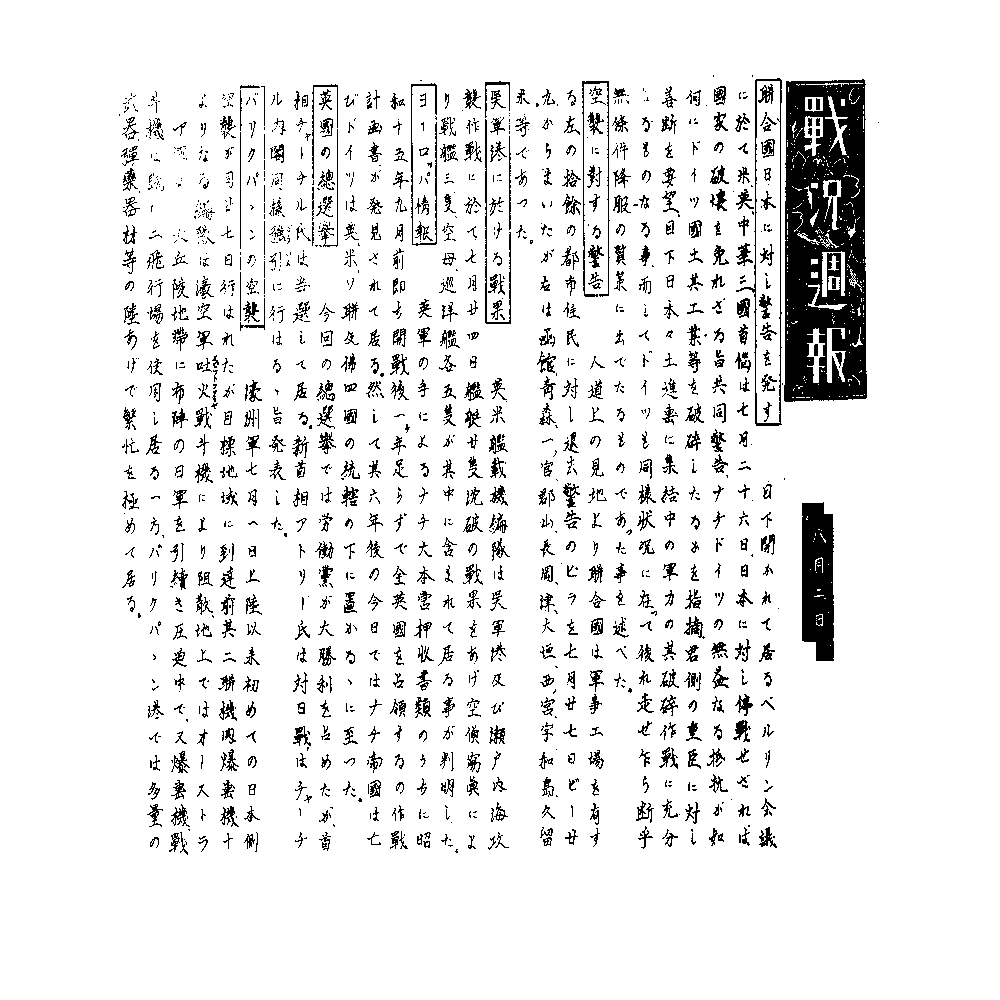 戰況週報
八月二日
聯合國日本に対し警告を発す 目下開かれて居るベルリン会議
に於て米英中華三國首脳は七月二十六日日本に対し停戰せざれば
國家の破壊を免れざる旨共同警告、ナチドイツの無益なる抵抗が如
何にドイツ國土其工業等を破砕したるかを指摘、君側の重臣に対し
善断を要望、目下日本々土進出に集結中の軍力の其破砕作戦に充分
なるものなる事、而してドイツも同様状況に在つて後れ走せ乍ら断乎
無條件降服の賢策に出でたるものであつた事を述べた。
空襲に対する警告 人道上の見地より聯合國は軍事工場を有す
る左の拾餘の都市住民に対し退去警告のビラを七月廿七日ビー廿
九からまいたが右は函館、青森、一ノ宮、郡山、長岡、津、大垣、西ノ宮、宇和島、久留
米、等であつた。
呉軍港に於ける戰果 英米艦載機編隊は呉軍港及び瀬戸内海攻
襲作戦に於て七月廿四日艦艇廿隻沈破の戰果をあげ空偵寫眞によ
り戰艦三隻空母巡洋艦各五隻が其中に含まれて居る事が判明した。
ヨーロッパ情報 英軍の手によるナチ大本営押收書類のうちに昭
和十五年九月前即ち開戰後一ヶ年足らずで全英國を占領するの作戰
計画書が発見されて居る。然して其六年後の今日ではナチ帝國は亡
びドイツは英米ソ聯及佛四國の統轄の下に置かるゝに至つた。
英國の總選擧 今回の總選擧では労働黨が大勝利を占めたが、首
相チャーチル氏は当選して居る。新首相アトリー氏は対日戰はチャーチ
ル内閣同様強引に行はるゝ旨発表した。
バリクパヽンの空襲 濠洲軍七月一日上陸以来初めての日本側
空襲が同廿七日行はれたが目標地域に到達前其二聯機内爆撃機十
よりなる編隊は濠空軍吐火戰斗機により阻散、地上ではオーストラ
リア 丘陵地帶に布陣の日軍を引續き圧迫中で、又爆撃機戰
斗機は 二飛行場を使用し居る一方、バリクパヽン港では多量の
武器彈藥器材等の陸あげで繁忙を極めて居る。